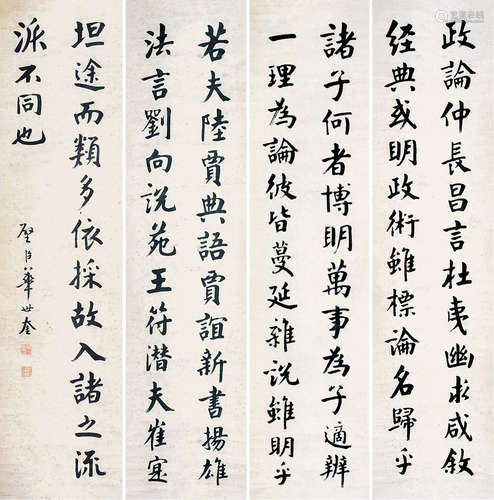 政論仲長昌言杜夷幽求咸敘
經典或明政術雖標論名歸乎
諸子何者博明萬事為子適辨
一理為論彼皆蔓延雜說雖明乎
若夫陸賈典語賈誼新書揚雄
法言劉向說苑王符潛夫崔寔
坦途而類多依採故入諸之流
派不同也
璧臣華世奎